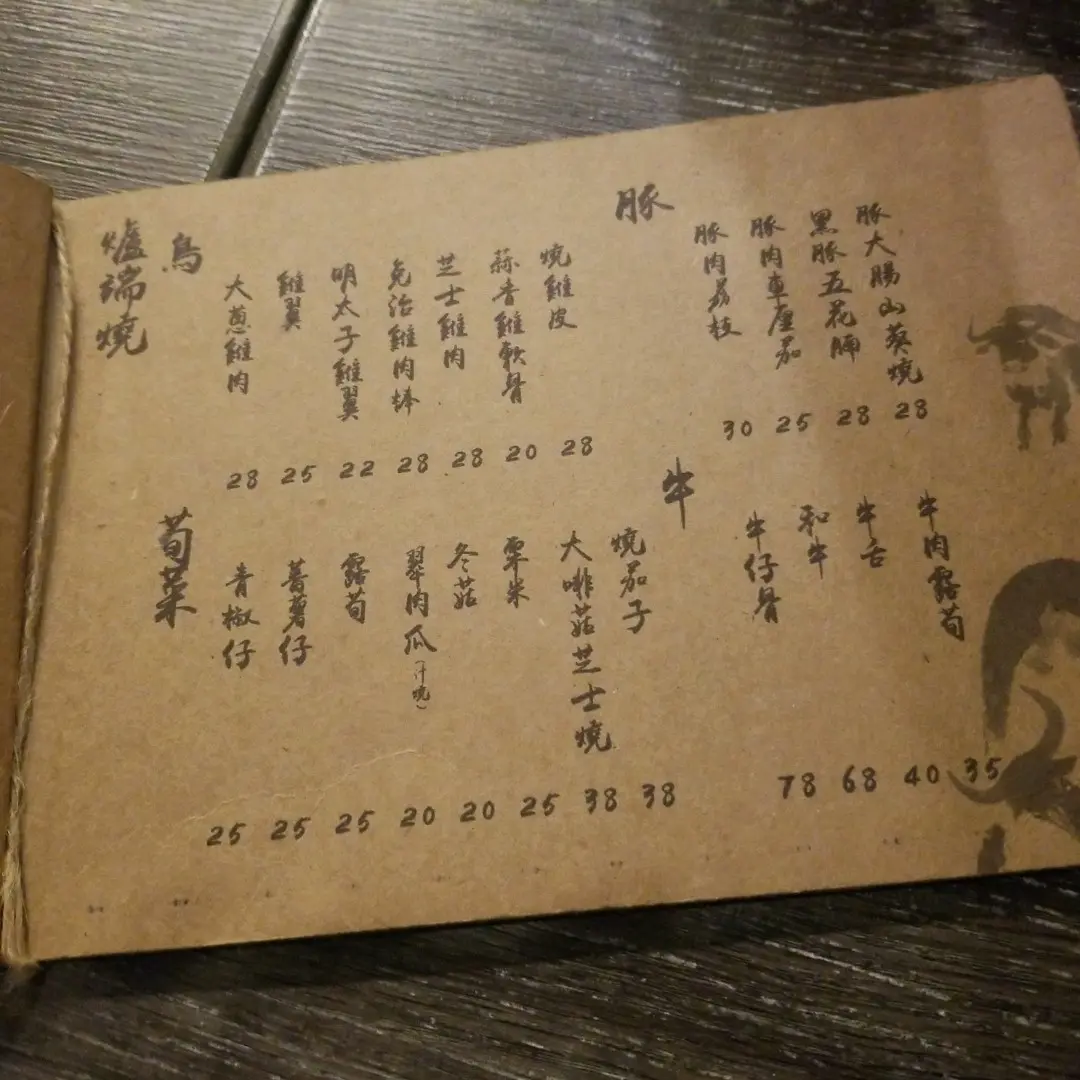 爐端燒
鳥
大葱雞肉
28
雞翼
25
明太子雞翼
22
免治雞肉棒
28
芝士雞肉
28
蒜香雞軟骨
20
燒雞皮
28
豚
豚肉荔枝
30
豚肉車厘茄
25
黑豚五花腩
28
豚大腸山葵燒
28
荀菜
青椒仔
25
蕃薯仔
25
露荀
25
翠肉瓜(汁燒)
20
冬菇
20
粟米
25
大啡菇芝士燒
38
燒茄子
38
牛
牛仔骨
78
和牛
68
牛舌
40
牛肉露荀
35